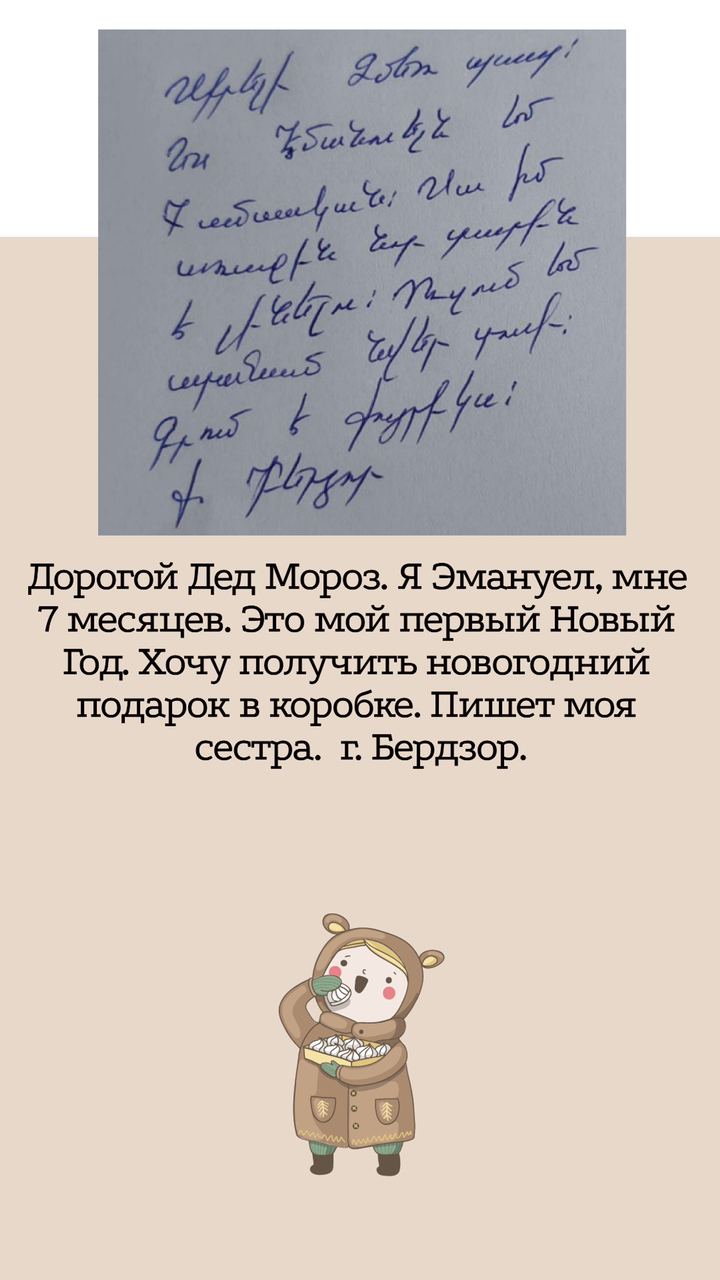 Սիրելի Ձմեռ պապ։
Ես Էմանուելն եմ
7 ամսական։ Սա իմ
առաջին նոր տարին
է լինելու։ Ուզում եմ
ստանամ նվեր տուփ։
Գրում է քույրիկս։
ք. Բերձոր
Дорогой Дед Мороз. Я Эмануел, мне
7 месяцев. Это мой первый Новый
Год. Хочу получить новогодний
подарок в коробке. Пишет моя
сестра. г. Бердзор.